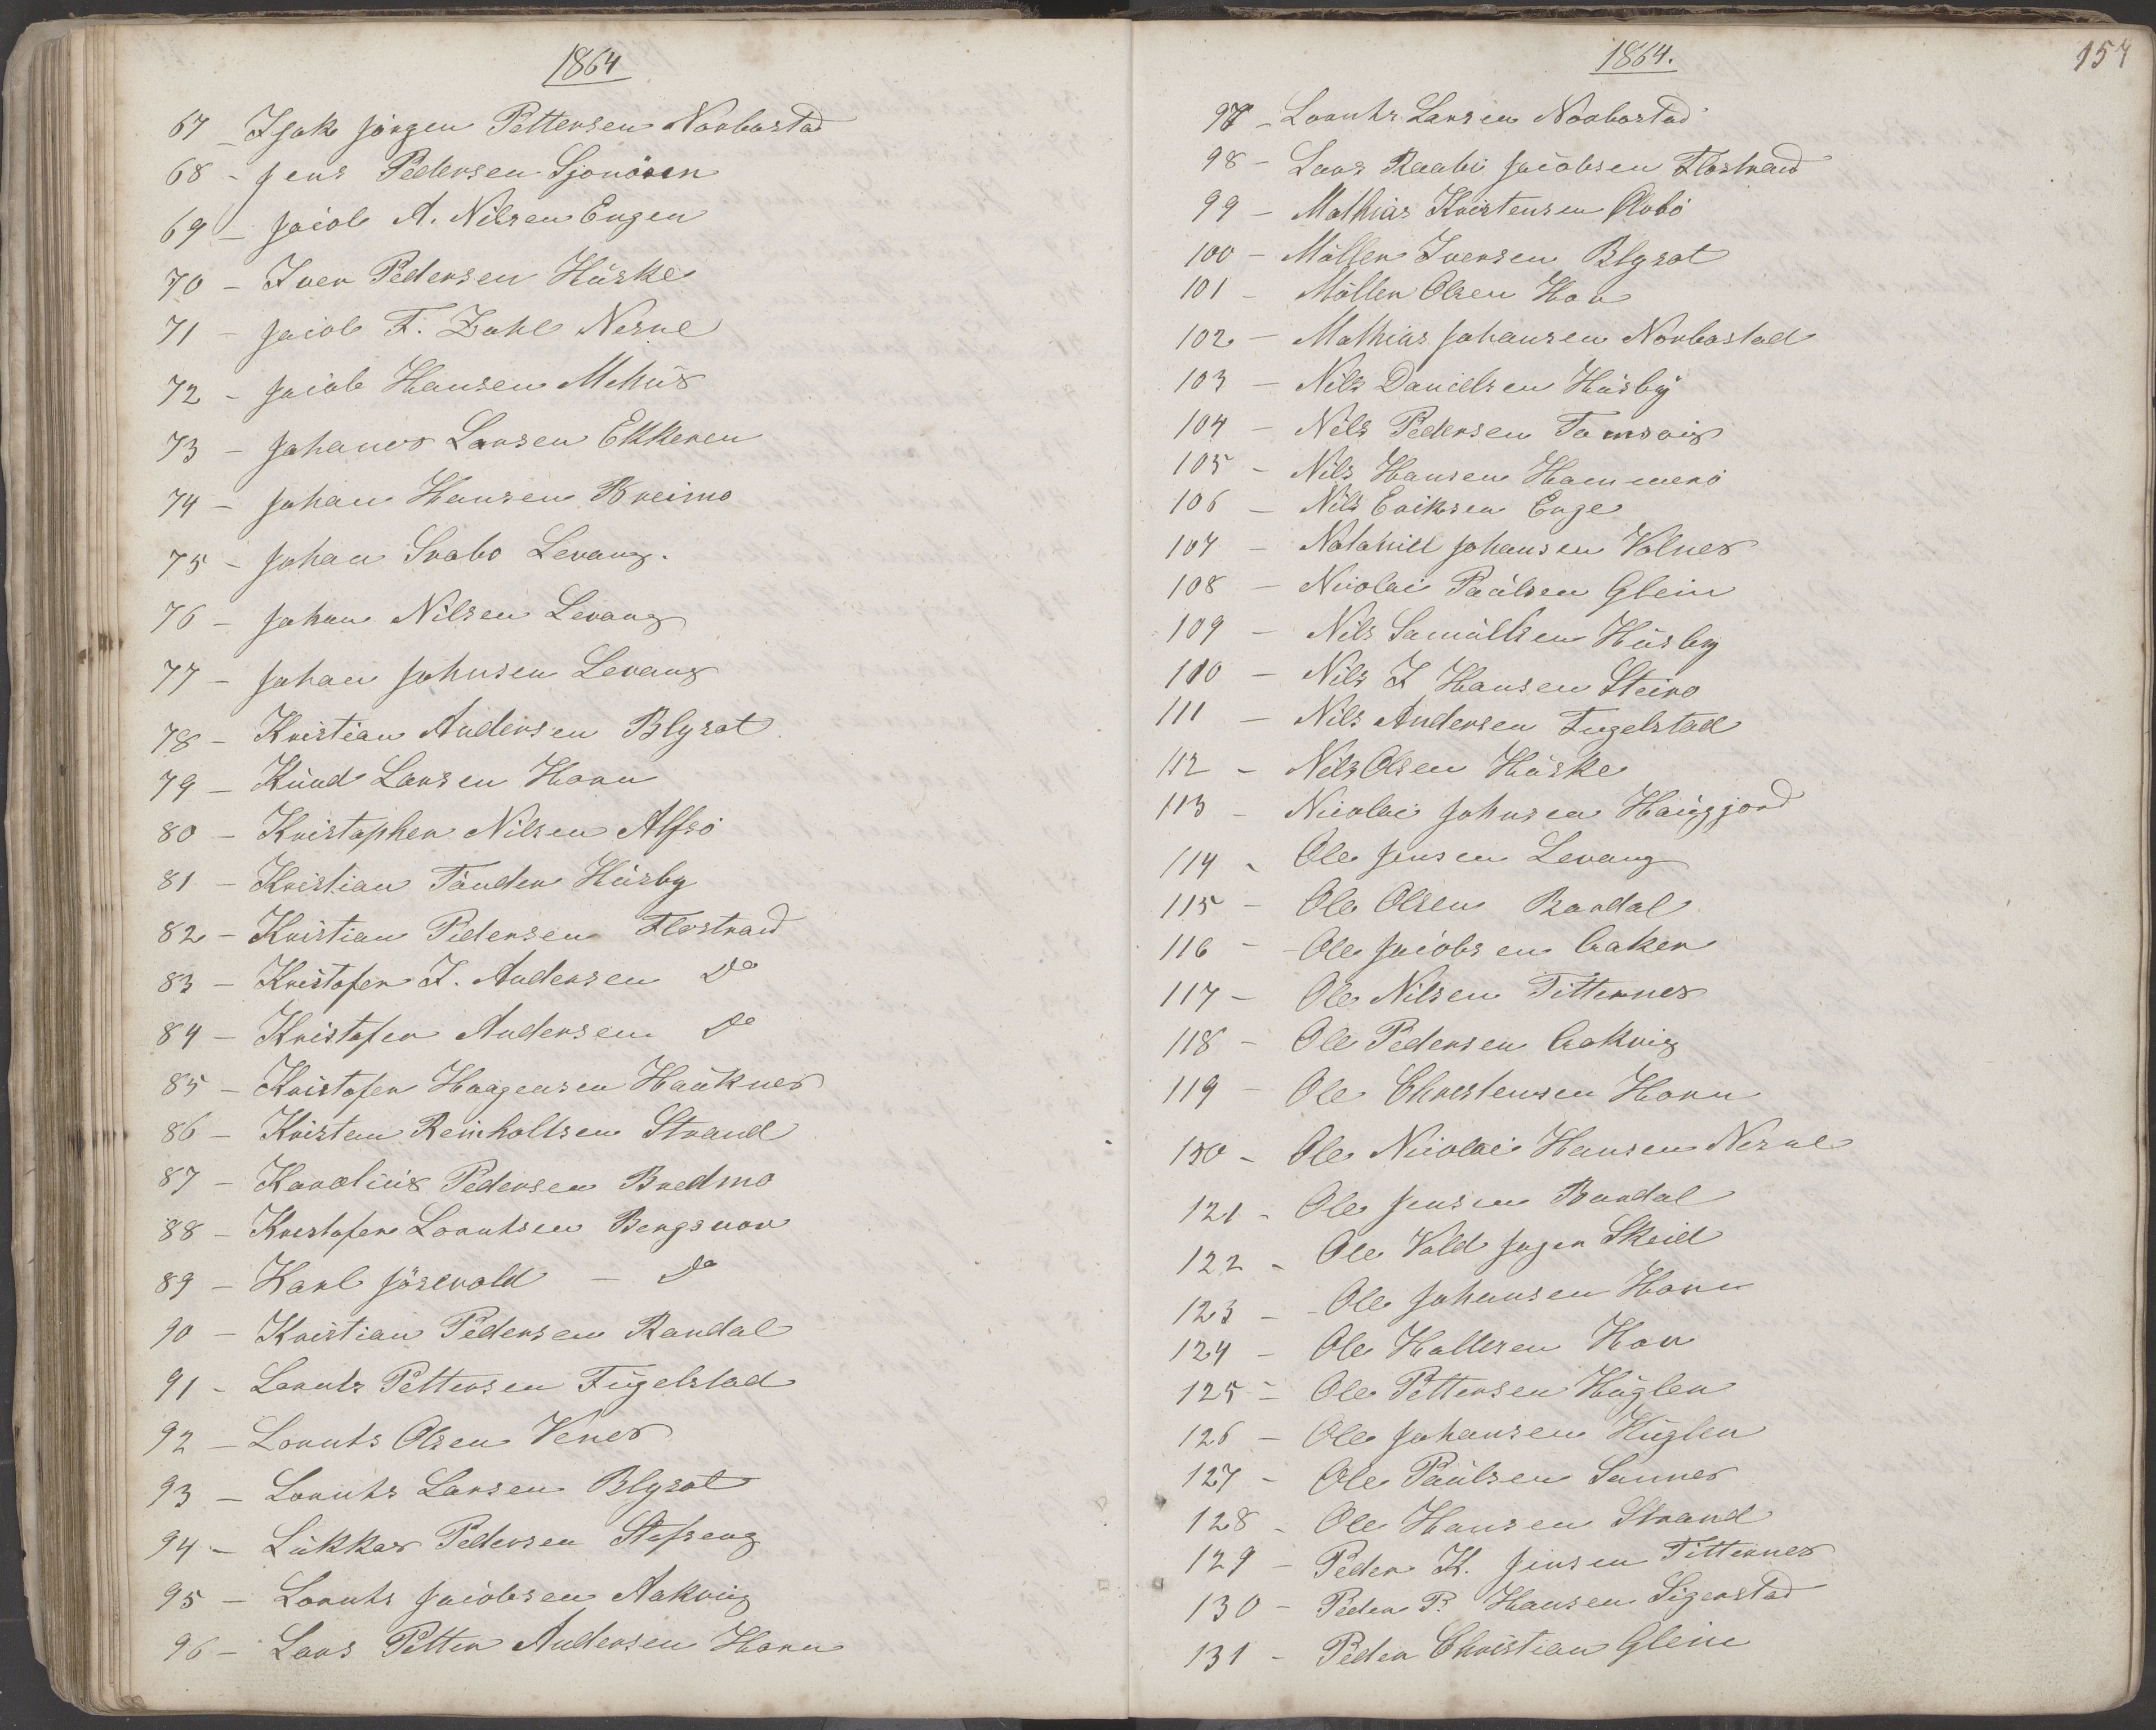 1864
67 - Isak Jörgen Pettersen Norbostad
68 - Jens Pedersen Sjonöien
69 - Jacob A. Nilsen Engen
70 - Iver Pedersen Húske
71 - Jacob F. Zahl Nesne
72 - Jacob Hansen Mehús
73 - Johanes Larsen Ekkeren
74 - Johan Hansen Breimo
75 - Johan Svabo Levang.
76 - Johan Nilsen Levang
77 - Johan Johnsen Levang
78 - Kristian Andersen Blysat
79 - Knúd Larsen Horn
80 - Kristopher Nilsen Alfsö
81 - Kristian Tönder Húsby
82 - Kristian Pedersen Flostrand
83 - Kristofer J. Andersen Do
84 - Kristofer Andersen Do
85 - Kristofer Haagensen Haúknes
86 - Kristen Reinholtsen Strand
87 - Karoliús Pedersen Bredmo
88 - Krestofer Lorntsen Bergsnov
89 - Karl Jösevold - Do
90 - Kristian Pedersen Randal
91 - Lornts Pettersen Fúgelstad
92 - Lornts Olsen Venes
93 - Lornts Larsen Blysat
94 - Lúkkas Pedersen Stefseng
95 - Lornts Jacobsen Aakvig
96 - Lars Petter Andersen Horn
1864.
157
97 - Lornts Larsen Norbostad
98 - Lars Raabi Jacobsen Flostrand
99 - Mathias Kristensen Avbö
100 - Möller Iversen Blysat
101 - Möller Olsen Hov
102 - Mathias Johansen Norbostad
103 - Nils Danielsen Húsby
104 - Nils Pedersen Tomsvig
105 - Nils Hansen Hammerö
106 - Nils Eriksen Enge
107 - Natanill Johansen Volnes
108 - Nicolai Paúlsen Glein
109 - Nils Samúlsen Húsby
110 - Nils J Hansen Steiro
111 - Nils Andersen Fugelstad
112 - Nils Olsen Húske
113 - Nicolai Johnsen Haúgjord
114 - Ole Jensen Levang
115 - Ole Olsen Bardal
116 - Ole Jacobsen Aaker
117 - Ole Nilsen Titternes
118 - Ole Pedersen Aakvig
119 - Ole Christensen Horn
120 - Ole Nicolai Hansen Nesne
121 - Ole Jensen Bardal
122 - Ole Vold Jager Skeid
123 - Ole Johansen Horn
124 - Ole Hallesen Hov
125 - Ole Pettersen Húglen
126 - Ole Johansen Húglen
127 - Ole Paúlsen Sannes
128 - Ole Hansen Strand
129 - Peder K. Jensen Titternes
130 - Peder P. Hansen Sigerstad
131 - Peder Christian Glein